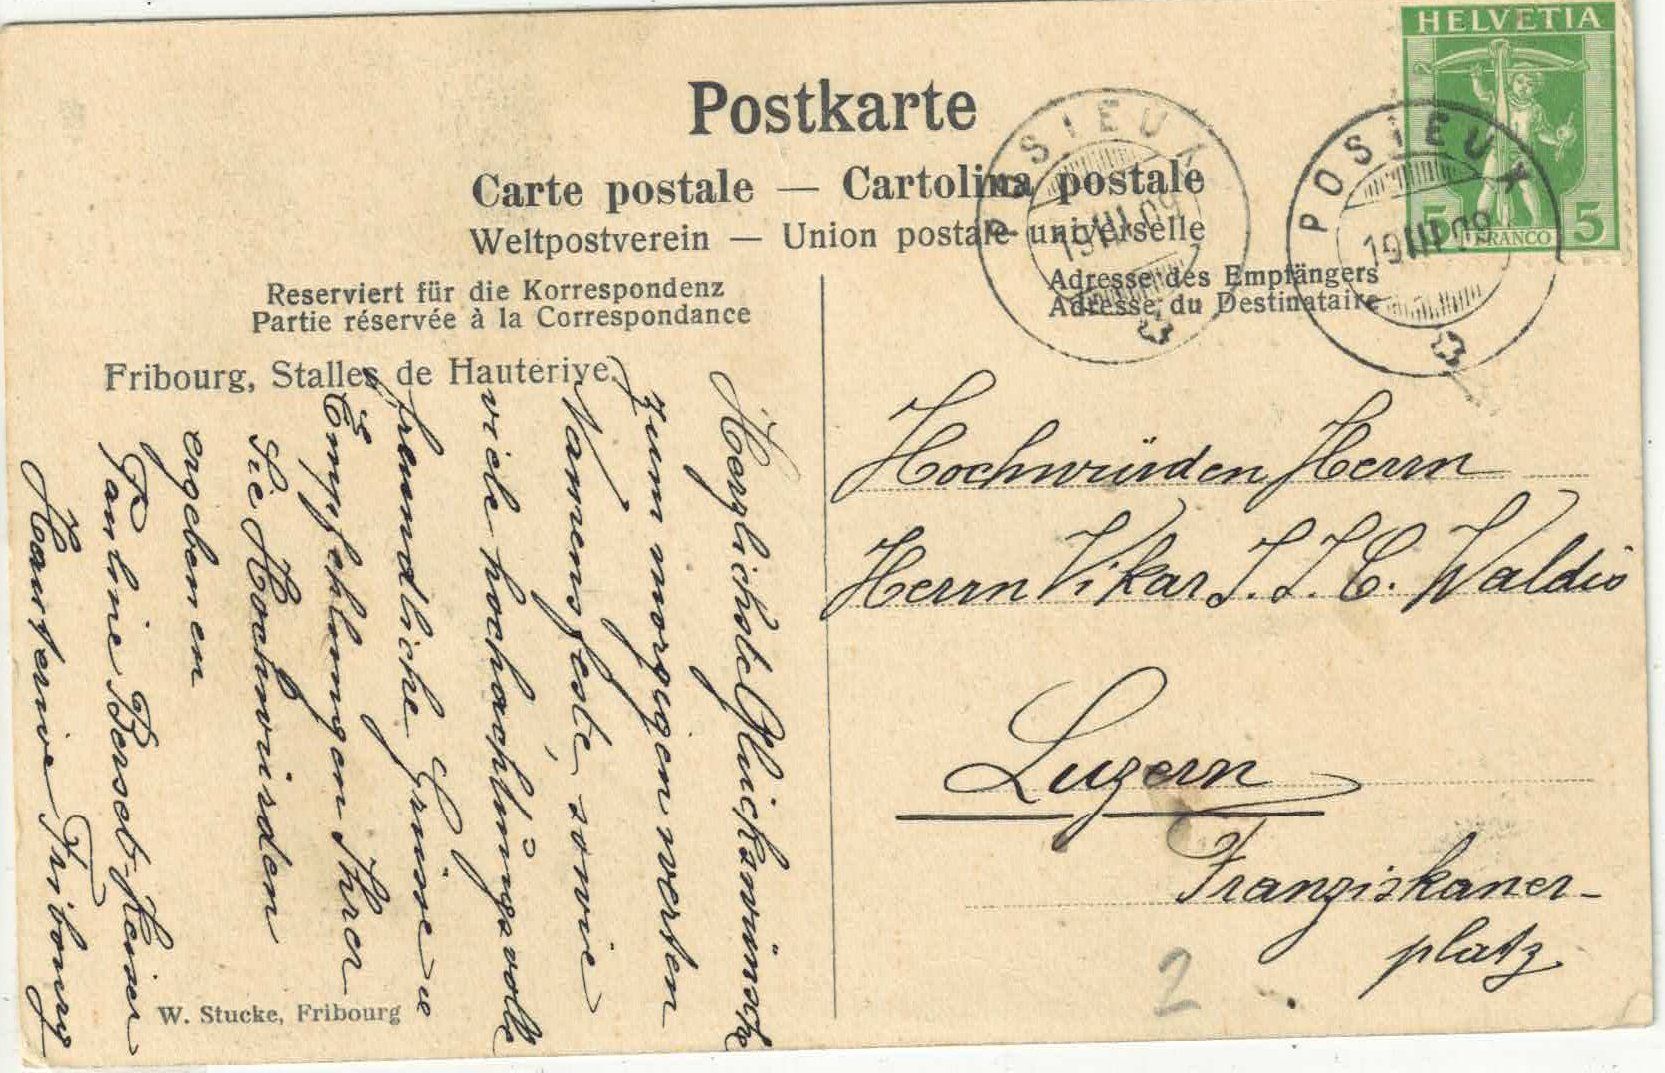 Postkarte
Carte postale — Cartolina postale
Weltpostverein — Union postale universelle
Reserviert für die Korrespondenz
Partie réservée à la Correspondance
Adresse des Empfängers
Adresse du Destinataire
HELVETIA
5 FRANCO 5
POSIEUX
19 III 09
POSIEUX
19 III 09
Fribourg, Stalles de Hauterive.
Herzlichste Glückwünsche
zum morgigen werten
Namensfeste sowie
viele hochachtungsvolle
freundliche Grüsse u
Empfehlungen Ihrer
Sie Hochwürden
ergebenen
Pauline Berset-
Hauterive Fribourg
Hochwürden Herrn
Herrn Vikar J. J. C. Waldis
Luzern
Franziskaner-
platz
2
W. Stucke, Fribourg